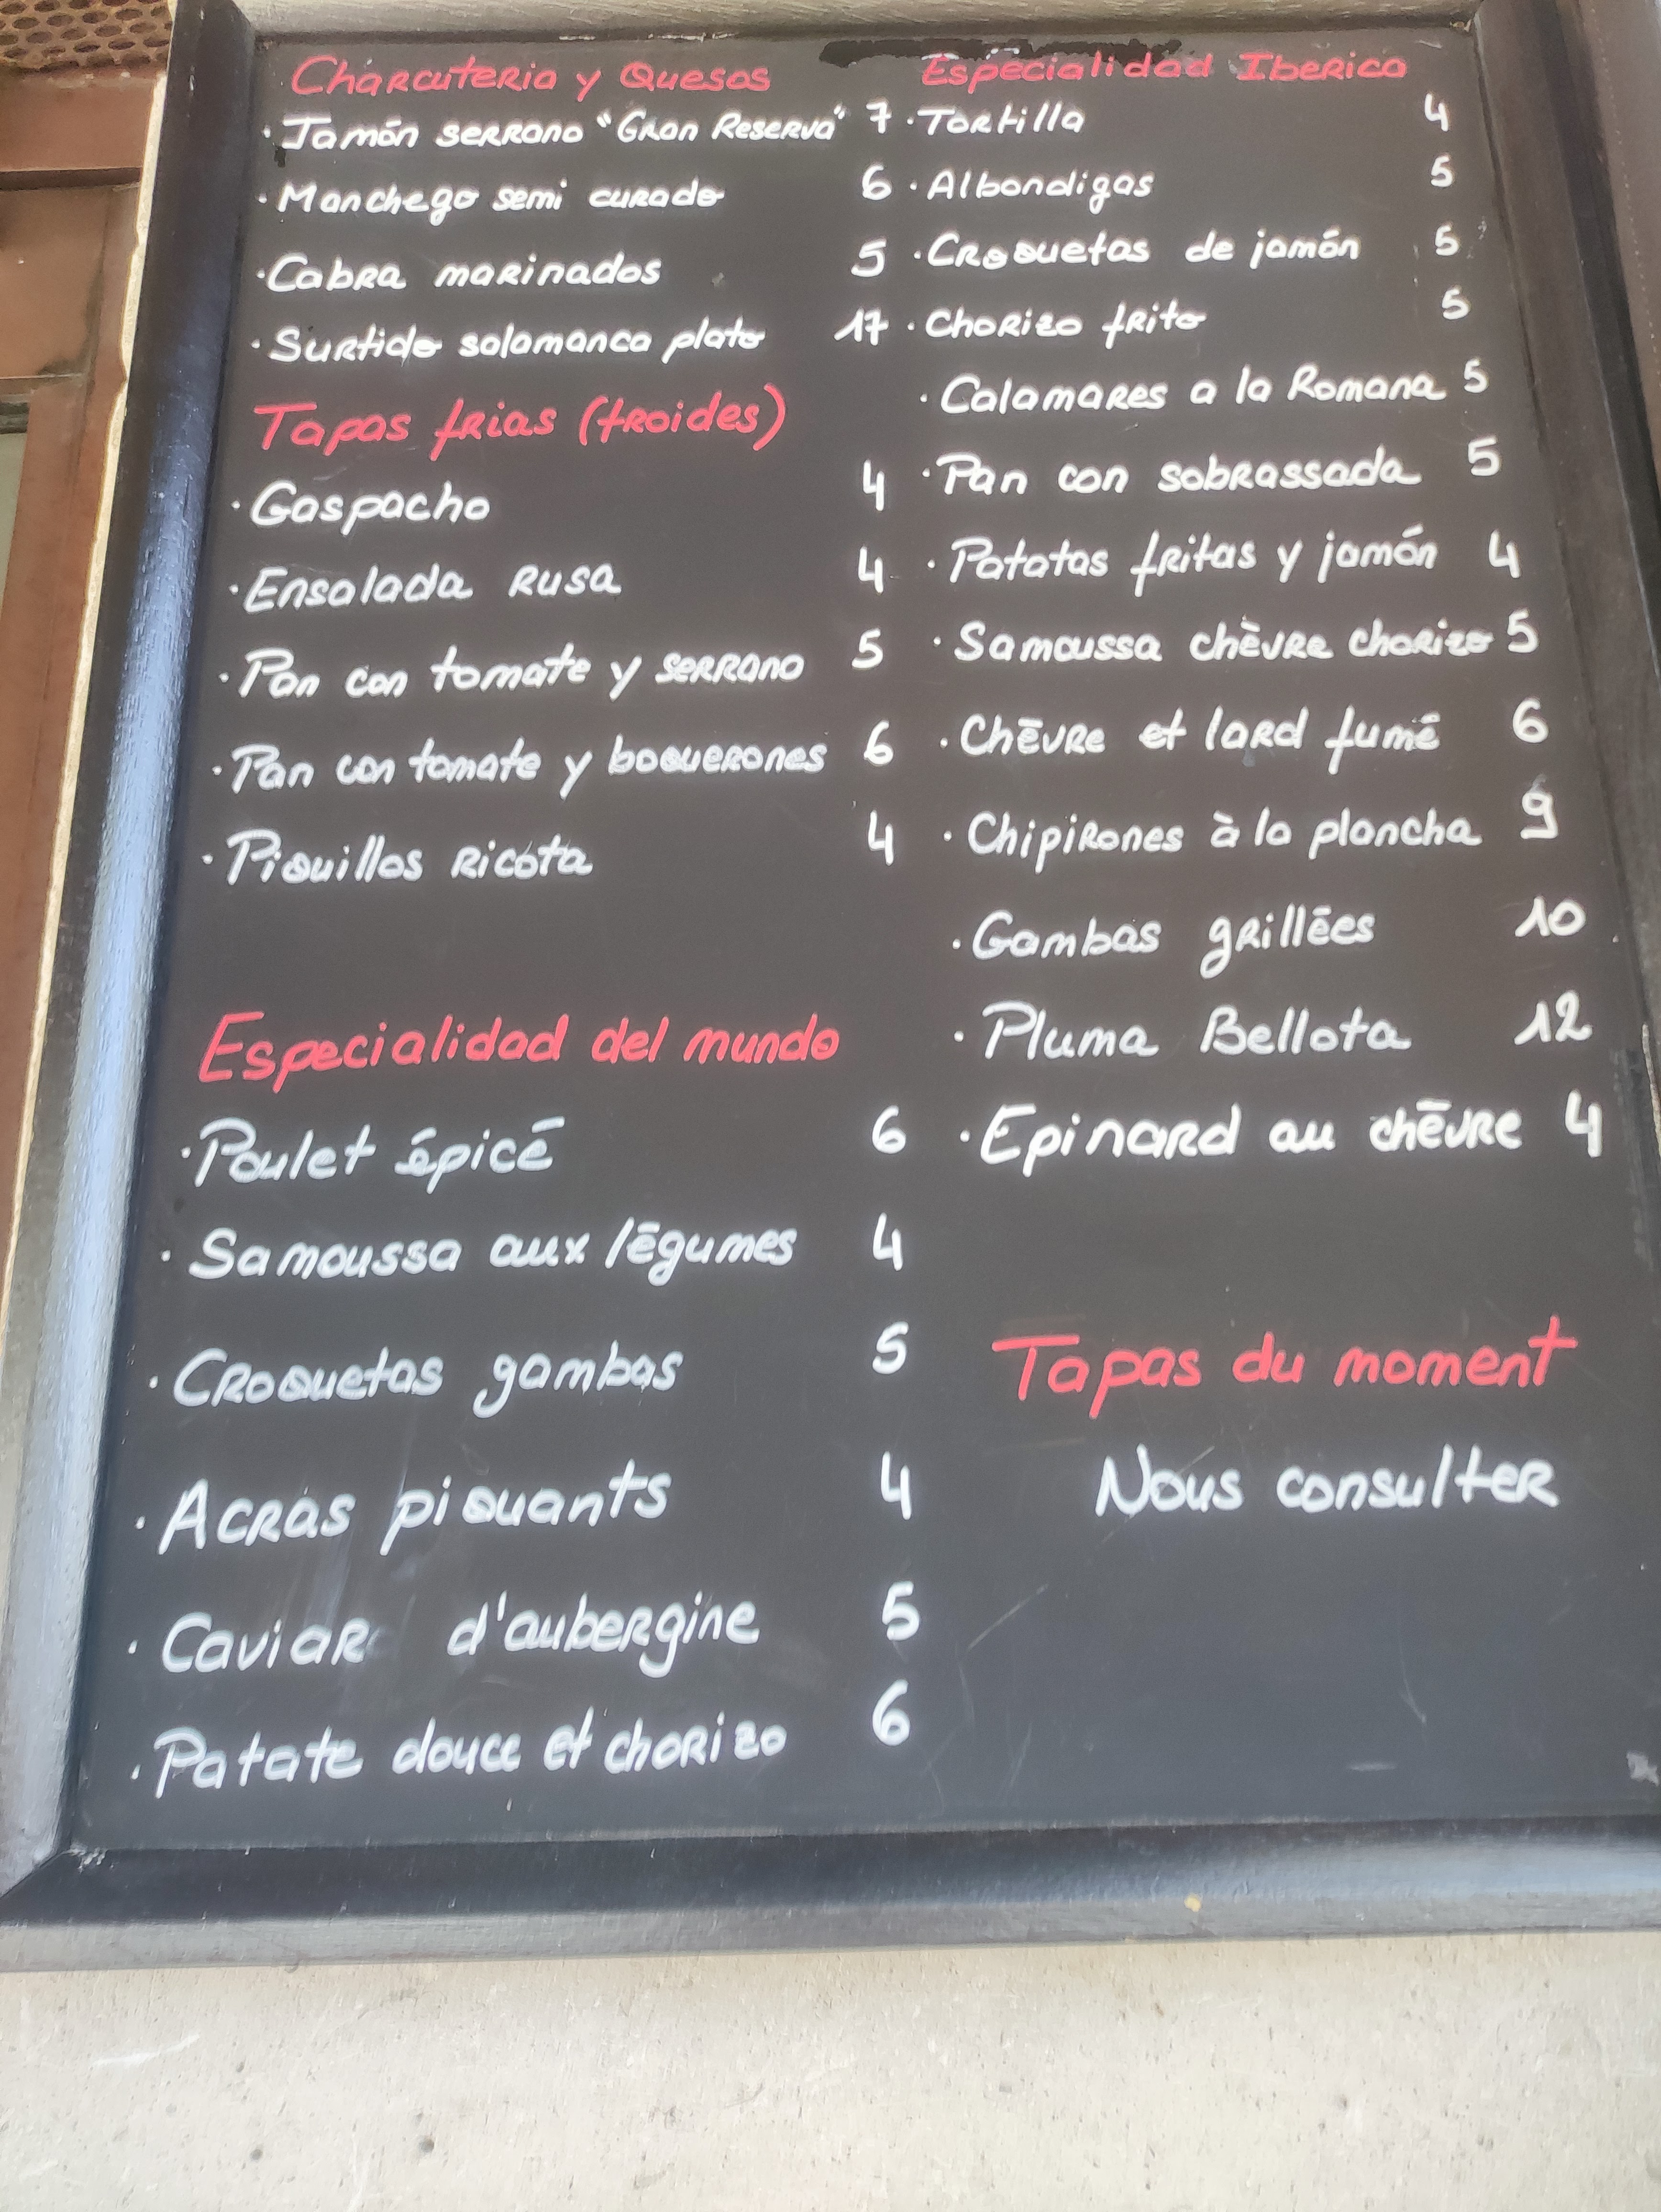 Charcuteria y Quesos
· Jamón serrano "Gran Reserva" 7
· Manchego semi curado 6
· Cabra marinados 5
· Surtido salamanca plato 17
Tapas frias (froides)
· Gaspacho 4
· Ensalada rusa 4
· Pan con tomate y serrano 5
· Pan con tomate y boquerones 6
· Piquillos ricota 4
Especialidad del mundo
· Poulet épicé 6
· Samoussa aux légumes 4
· Croquetas gambas 5
· Acras piquants 4
· Caviar d'aubergine 5
· Patate douce et chorizo 6
Especialidad Iberico
· Tortilla 4
· Albondigas 5
· Croquetas de jamón 5
· Chorizo frito 5
· Calamares a la Romana 5
· Pan con sobrassada 5
· Patatas fritas y jamón 4
· Samoussa chèvre chorizo 5
· Chēvre et lard fumé 6
· Chipirones à la plancha 9
· Gambas grillēes 10
· Pluma Bellota 12
· Epinard au chēvre 4
Tapas du moment
Nous consulter